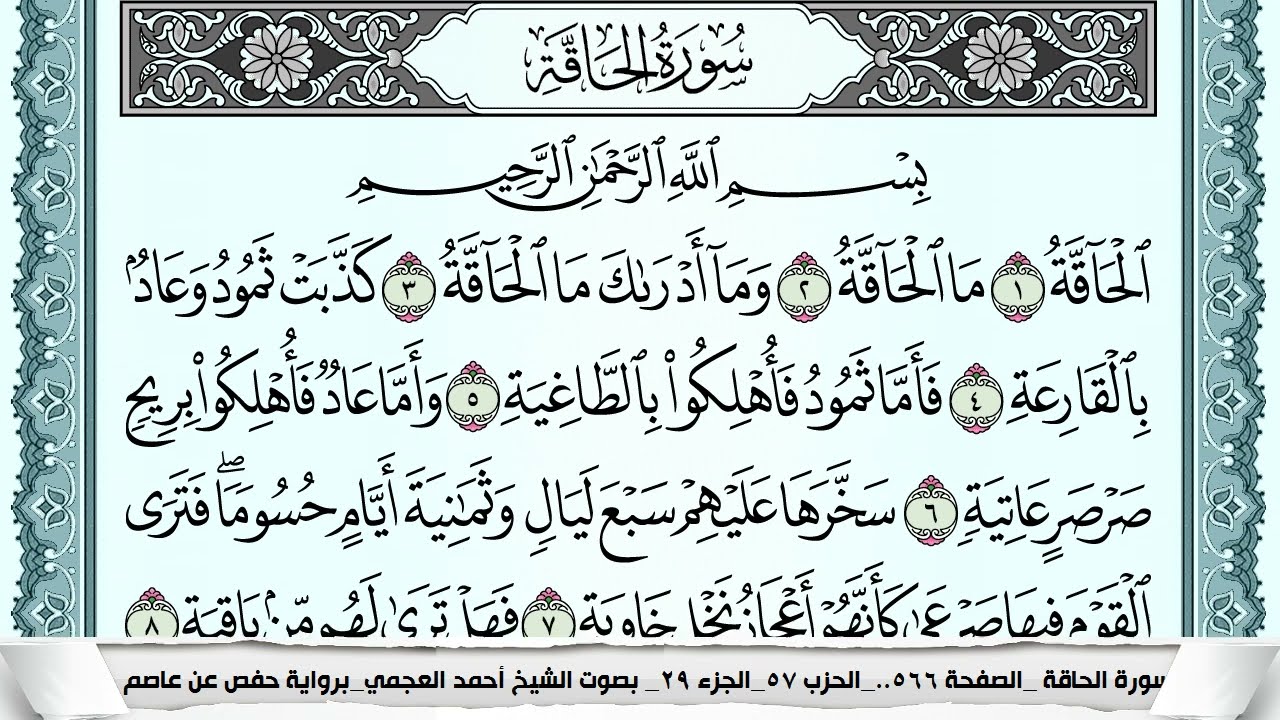 سُورَةُ الحَاقَّةِ
بِسْمِ ٱللَّهِ ٱلرَّحْمَٰنِ ٱلرَّحِيمِ
ٱلْحَآقَّةُ ١ مَا ٱلْحَآقَّةُ ٢ وَمَآ أَدْرَىٰكَ مَا ٱلْحَآقَّةُ ٣ كَذَّبَتْ ثَمُودُ وَعَادُۢ
بِٱلْقَارِعَةِ ٤ فَأَمَّا ثَمُودُ فَأُهْلِكُوا۟ بِٱلطَّاغِيَةِ ٥ وَأَمَّا عَادٌ فَأُهْلِكُوا۟ بِرِيحٍ
صَرْصَرٍ عَاتِيَةٍ ٦ سَخَّرَهَا عَلَيْهِمْ سَبْعَ لَيَالٍ وَثَمَٰنِيَةَ أَيَّامٍ حُسُومًاۖ فَتَرَى
ٱلْقَوْمَ فِيهَا صَرْعَىٰ كَأَنَّهُمْ أَعْجَازُ نَخْلٍ خَاوِيَةٍ ٧ فَهَلْ تَرَىٰ لَهُم مِّنۢ بَاقِيَةٍ ٨
سورة الحاقة _الصفحة ٥٦٦.._الحزب ٥٧_الجزء ٢٩_ بصوت الشيخ أحمد العجمي_برواية حفص عن عاصم